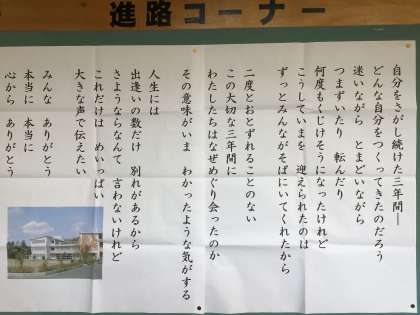 進路コーナー
自分をさがし続けた三年間―
どんな自分をつくってきたのだろう
迷いながら とまどいながら
つまずいたり 転んだり
何度もくじけそうになったけれど
こうしていまを 迎えられたのは
ずっとみんながそばにいてくれたから
二度とおとずれることのない
この大切な三年間に
わたしたちはなぜめぐり会ったのか
その意味がいま わかったような気がする
人生には
出逢いの数だけ 別れがあるから
さようならなんて 言わないけれど
これだけは めいっぱい
大きな声で伝えたい
みんな ありがとう
本当に 本当に
心から ありがとう